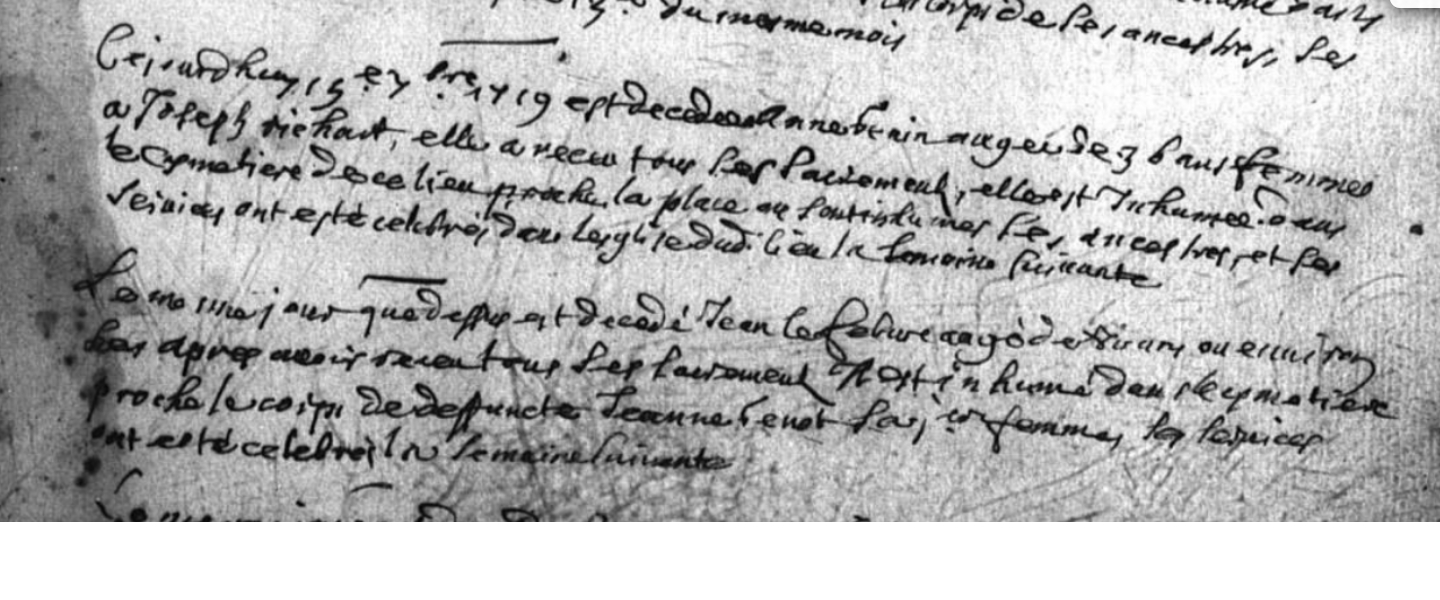 corps de ses ancestres, ses
du mesme mois
Cejourdhuy 15e 7bre 1719 est decedee Anne aagee de 36 ans femme
a Joseph richart, elle a receu tous ses sacrement, elle est Inhumee dans
le cymetiere de ce lieu proche la place ou sont inhumes ses ancestres, et ses
services ont esté celebrés dans lesglise dud. lieu la semaine suivante
Le mesme jour que dessus est decedé Jean le febure aagé de ans ou environ
apres avoir receu tous ses sacrement Il est inhumé dans le cymetiere
proche le corps de deffuncte Jeanne benot sa femme, les services
ont esté celebrés la semaine suivante